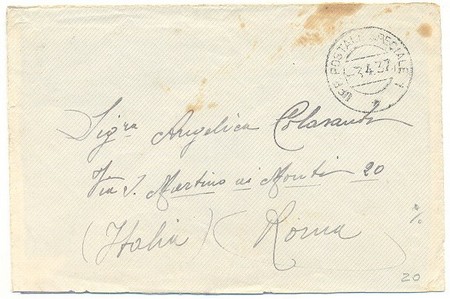 UFF. POSTALE SPECIALE 1
3.4.37
Sigra Angelica Colasanti
Via S. Martino ai Monti 20
(Italia) Roma
20